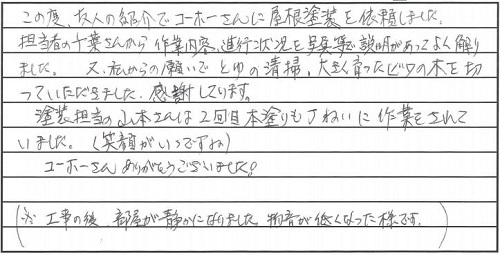 この度、友人の紹介でコーホーさんに屋根塗装を依頼しました。
担当者の千葉さんから作業内容、進行状況を写真等で説明があってよく解り
ました。又、私からの願いでとゆの清掃、大きく育ったビワの木を切
っていただきました。感謝しています。
塗装担当の山本さんは2回目本塗りも丁ねいに作業をされて
いました。(笑顔がいつですね)
コーホーさんありがとうございました!
(※ 工事の後、部屋が静かになりました。物音が低くなった様です。)